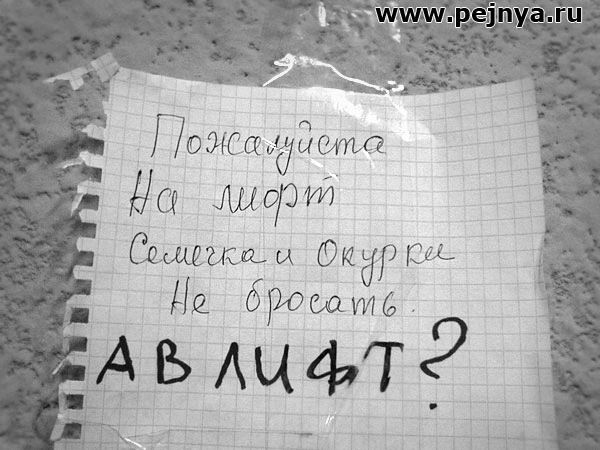 www.pejnya.ru
Пожалуйста
На лифт
Семечка и Окурки
Не бросать.
А В ЛИФТ?